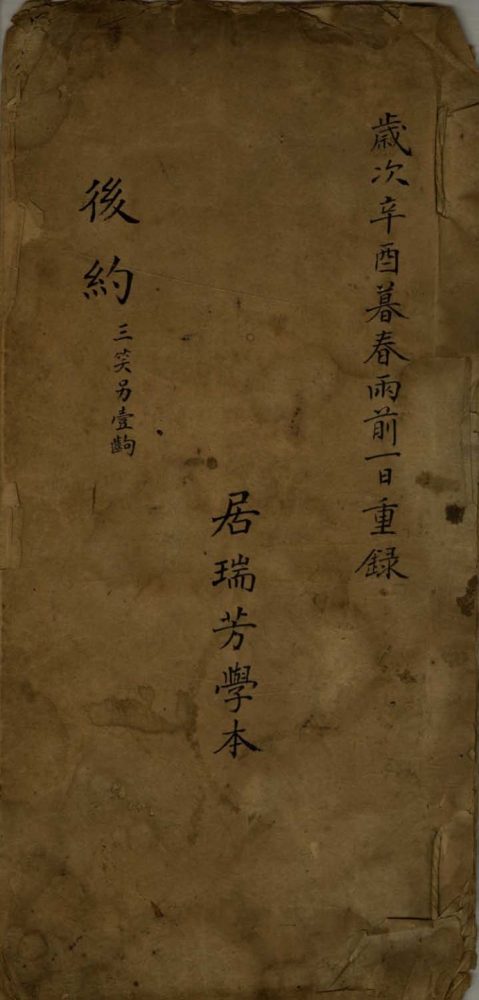 歲次辛酉暮春雨前一日重錄
居瑞芳學本
後約
三笑另壹齣